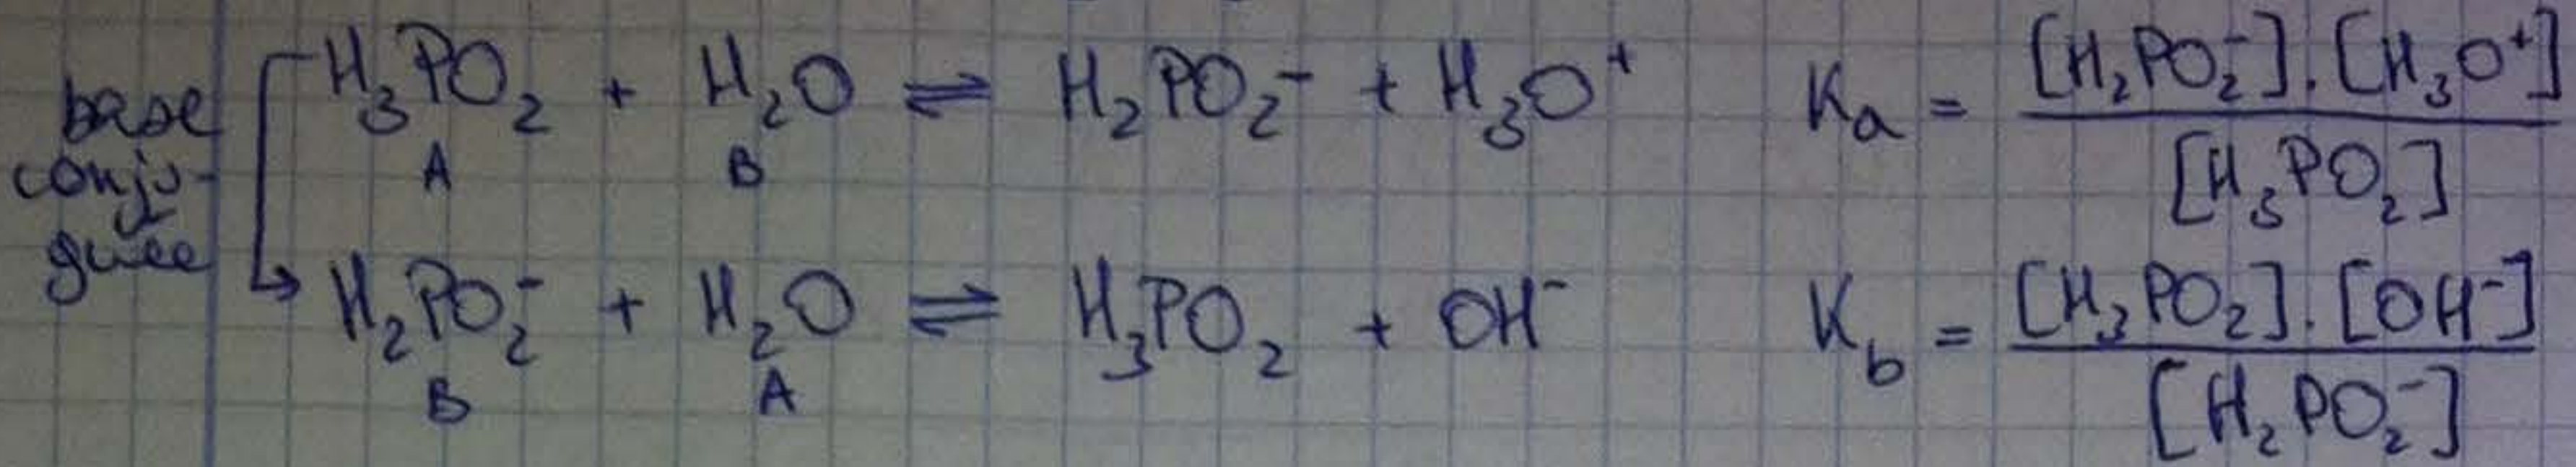 base conju-guée
H₃PO₂ + H₂O ⇌ H₂PO₂⁻ + H₃O⁺ Ka = [H₂PO₂⁻].[H₃O⁺] / [H₃PO₂]
A B
H₂PO₂⁻ + H₂O ⇌ H₃PO₂ + OH⁻ Kb = [H₃PO₂].[OH⁻] / [H₂PO₂⁻]
B A